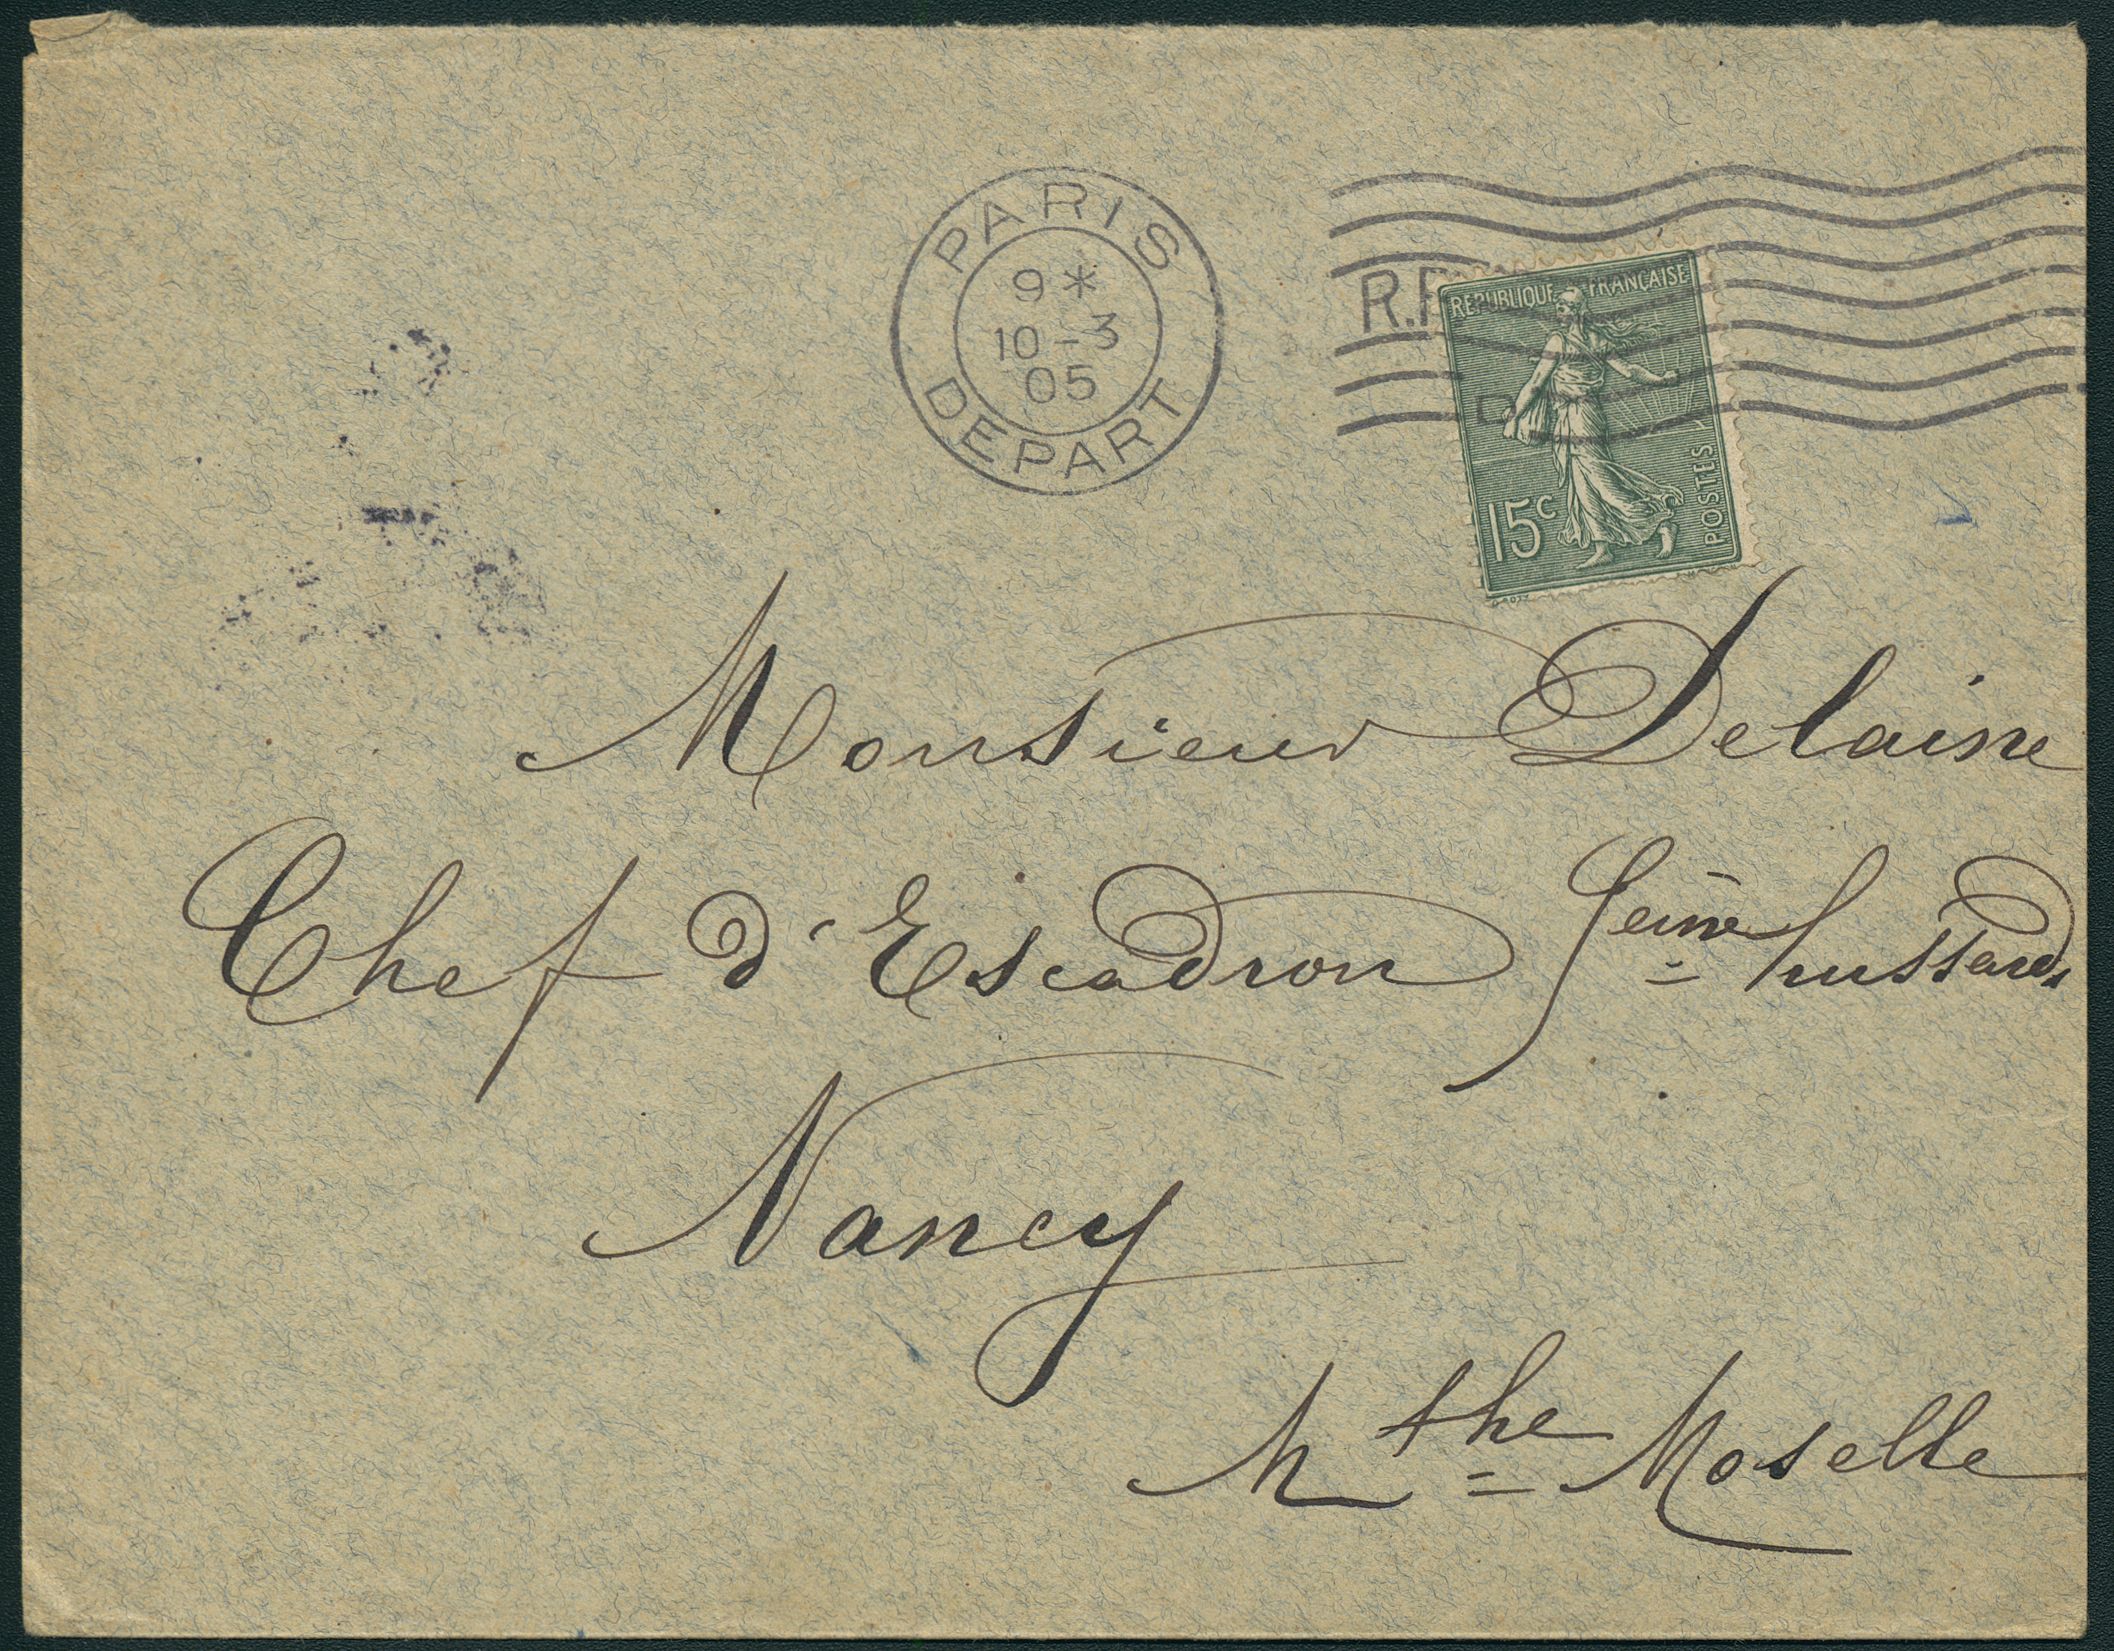 PARIS
9 *
10-3
05
DEPART
R.F
REPUBLIQUE FRANÇAISE
15c
POSTES
Monsieur Delaine
Chef d'Escadron hussards
Nancy
Mthe Moselle